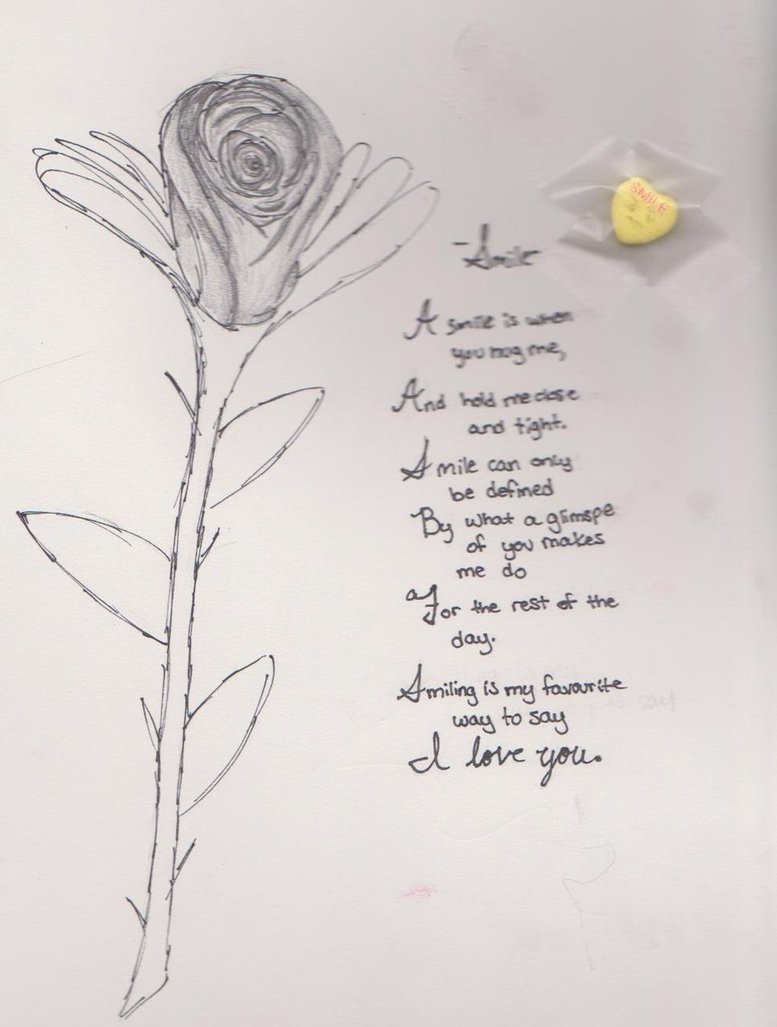 SMILE
-Smile-
A smile is when
you hug me,
And hold me close
and tight.
Smile can only
be defined
By what a glimspe
of you makes
me do
For the rest of the
day.
Smiling is my favourite
way to say
I love you.